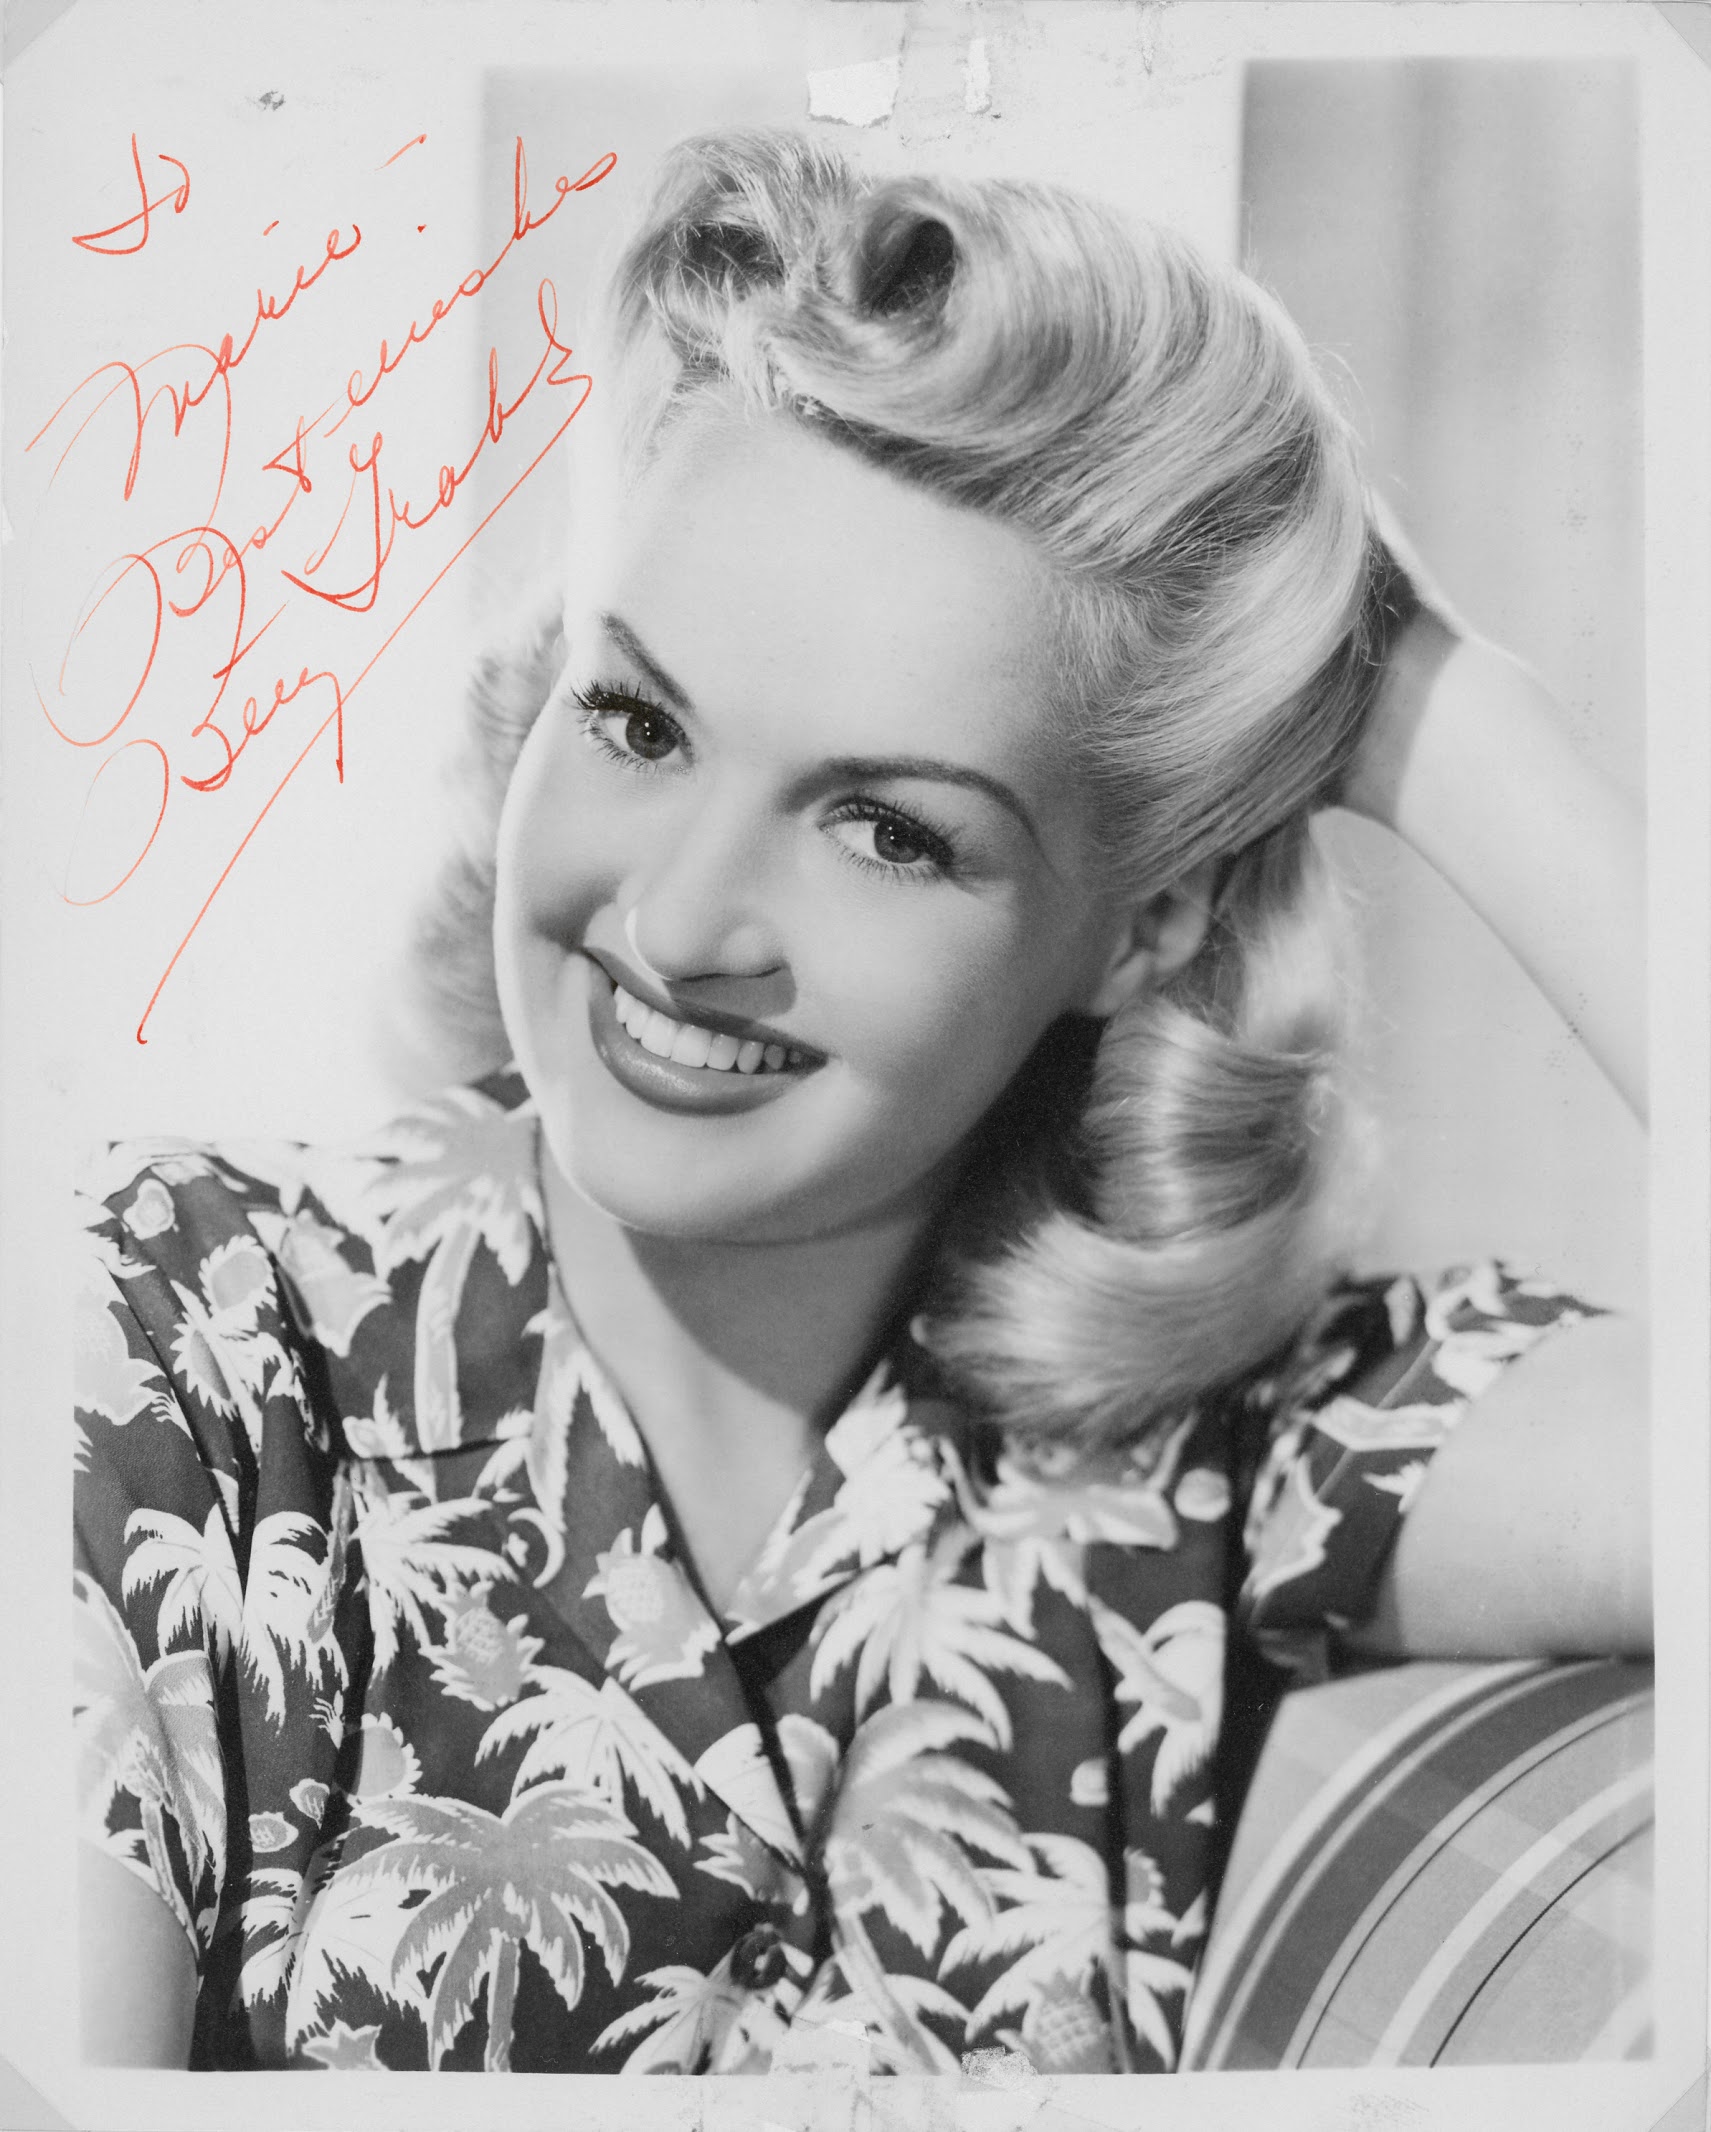 To
Marie!
Best wishes
Betty Grable